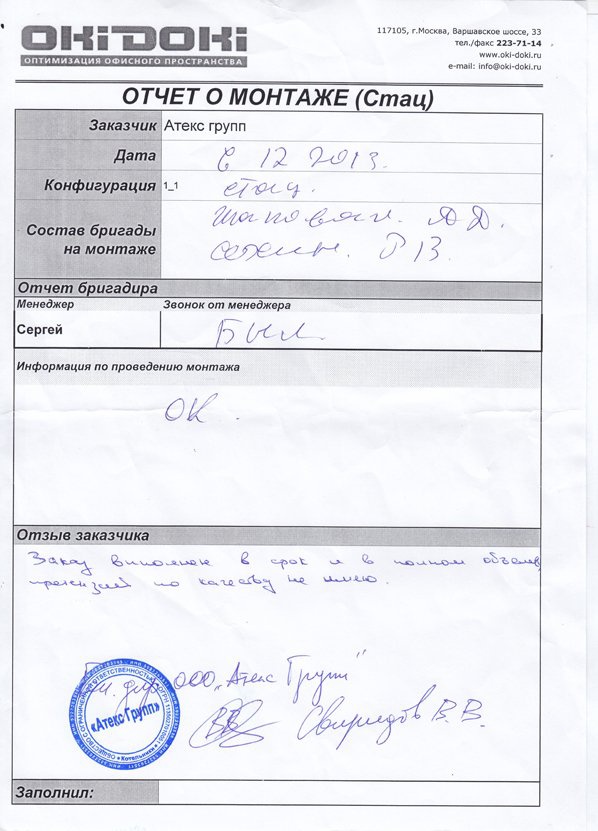 OKIDOKI
ОПТИМИЗАЦИЯ ОФИСНОГО ПРОСТРАНСТВА
117105, г.Москва, Варшавское шоссе, 33
тел./факс 223-71-14
www.oki-doki.ru
e-mail: info@oki-doki.ru
ОТЧЕТ О МОНТАЖЕ (Стац)
Заказчик Атекс групп
Дата 12 2013.
Конфигурация 1_1 стац.
Состав бригады на монтаже
Шаповал. А Д.
Отчет бригадира
Менеджер Звонок от менеджера
Сергей Был
Информация по проведению монтажа
ОК.
Отзыв заказчика
Заказ выполнен в срок и в полном объеме,
претензий по качеству не имею.
Ген. дир. ООО "Атекс Групп"
Свиридов В.В.
ОБЩЕСТВО С ОГРАНИЧЕННОЙ ОТВЕТСТВЕННОСТЬЮ
«Атекс Групп»
Котельники
Заполнил: